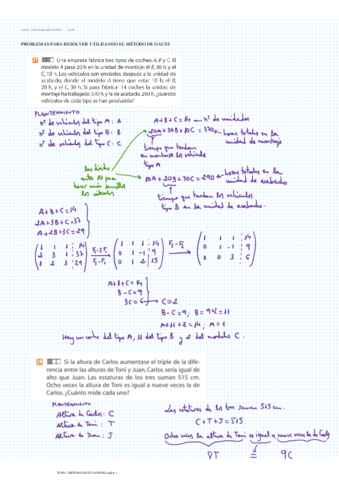 PROBLEMAS PARA RESOLVER UTILIZANDO EL MÉTODO DE GAUSS
Una empresa fabrica tres tipos de coches: A, B y C. El
modelo A pasa 20 h en la unidad de montaje; el B, 30 h, y el
C, 10 h. Los vehículos son enviados después a la unidad de
acabado, donde el modelo A tiene que estar 10 h, el
B, 20 h, y el C, 30 h. Si para fabricar 14 coches la unidad de
montaje ha trabajado 370 h y la de acabado, 290 h, ¿cuántos
vehículos de cada tipo se han producido?
PLANTEAMIENTO
nº de vehículos del tipo A : A
nº de vehículos del tipo B : B
nº de vehículos del tipo C : C
A+B+C=14 → nº de unidades
20A+30B+10C=370 → horas totales en la
unidad de montaje
tiempo que tardan
en montarse los vehículos
tipo A
10A+20B+30C=290 → horas totales en la
unidad de acabado
tiempo que tardan los vehículos
tipo B en la unidad de acabado.
Las divido
entre 10 para
hacer más sencillos
los cálculos
A+B+C=14
2A+3B+C=37
A+2B+3C=29
1 1 1 14
2 3 1 37
1 2 3 29
F₂-2F₁
F₃-F₁
1 1 1 14
0 1 -1 9
0 1 2 15
F₃-F₂
1 1 1 14
0 1 -1 9
0 0 3 6
A+B+C=14
B-C=9
3C=6 → C=2
B-C=9; B=9+2=11
A+11+2=14; A=1
Hay un coche del tipo A, 11 del tipo B y 2 del modelo C.
Si la altura de Carlos aumentase el triple de la dife-
rencia entre las alturas de Toni y Juan, Carlos sería igual de
alto que Juan. Las estaturas de los tres suman 515 cm.
Ocho veces la altura de Toni es igual a nueve veces la de
Carlos. ¿Cuánto mide cada uno?
PLANTEAMIENTO
Altura de Carlos: C
Altura de Toni : T
Altura de Juan : J
Las estaturas de los tres suman 515 cm.
C+T+J=515
Ocho veces la altura de Toni es igual a nueve veces la de Carlos
8T = 9C